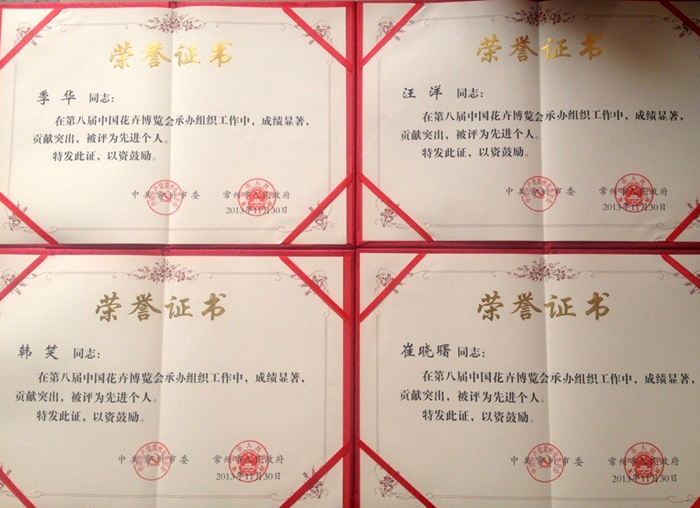 荣誉证书
季华 同志：
在第八届中国花卉博览会承办组织工作中，成绩显著，
贡献突出，被评为先进个人。
特发此证，以资鼓励。
中共常州市委 常州市人民政府
2013年11月30日
荣誉证书
汪洋 同志：
在第八届中国花卉博览会承办组织工作中，成绩显著，
贡献突出，被评为先进个人。
特发此证，以资鼓励。
中共常州市委 常州市人民政府
2013年11月30日
荣誉证书
韩笑 同志：
在第八届中国花卉博览会承办组织工作中，成绩显著，
贡献突出，被评为先进个人。
特发此证，以资鼓励。
中共常州市委 常州市人民政府
2013年11月30日
荣誉证书
崔晓曙 同志：
在第八届中国花卉博览会承办组织工作中，成绩显著，
贡献突出，被评为先进个人。
特发此证，以资鼓励。
中共常州市委 常州市人民政府
2013年11月30日